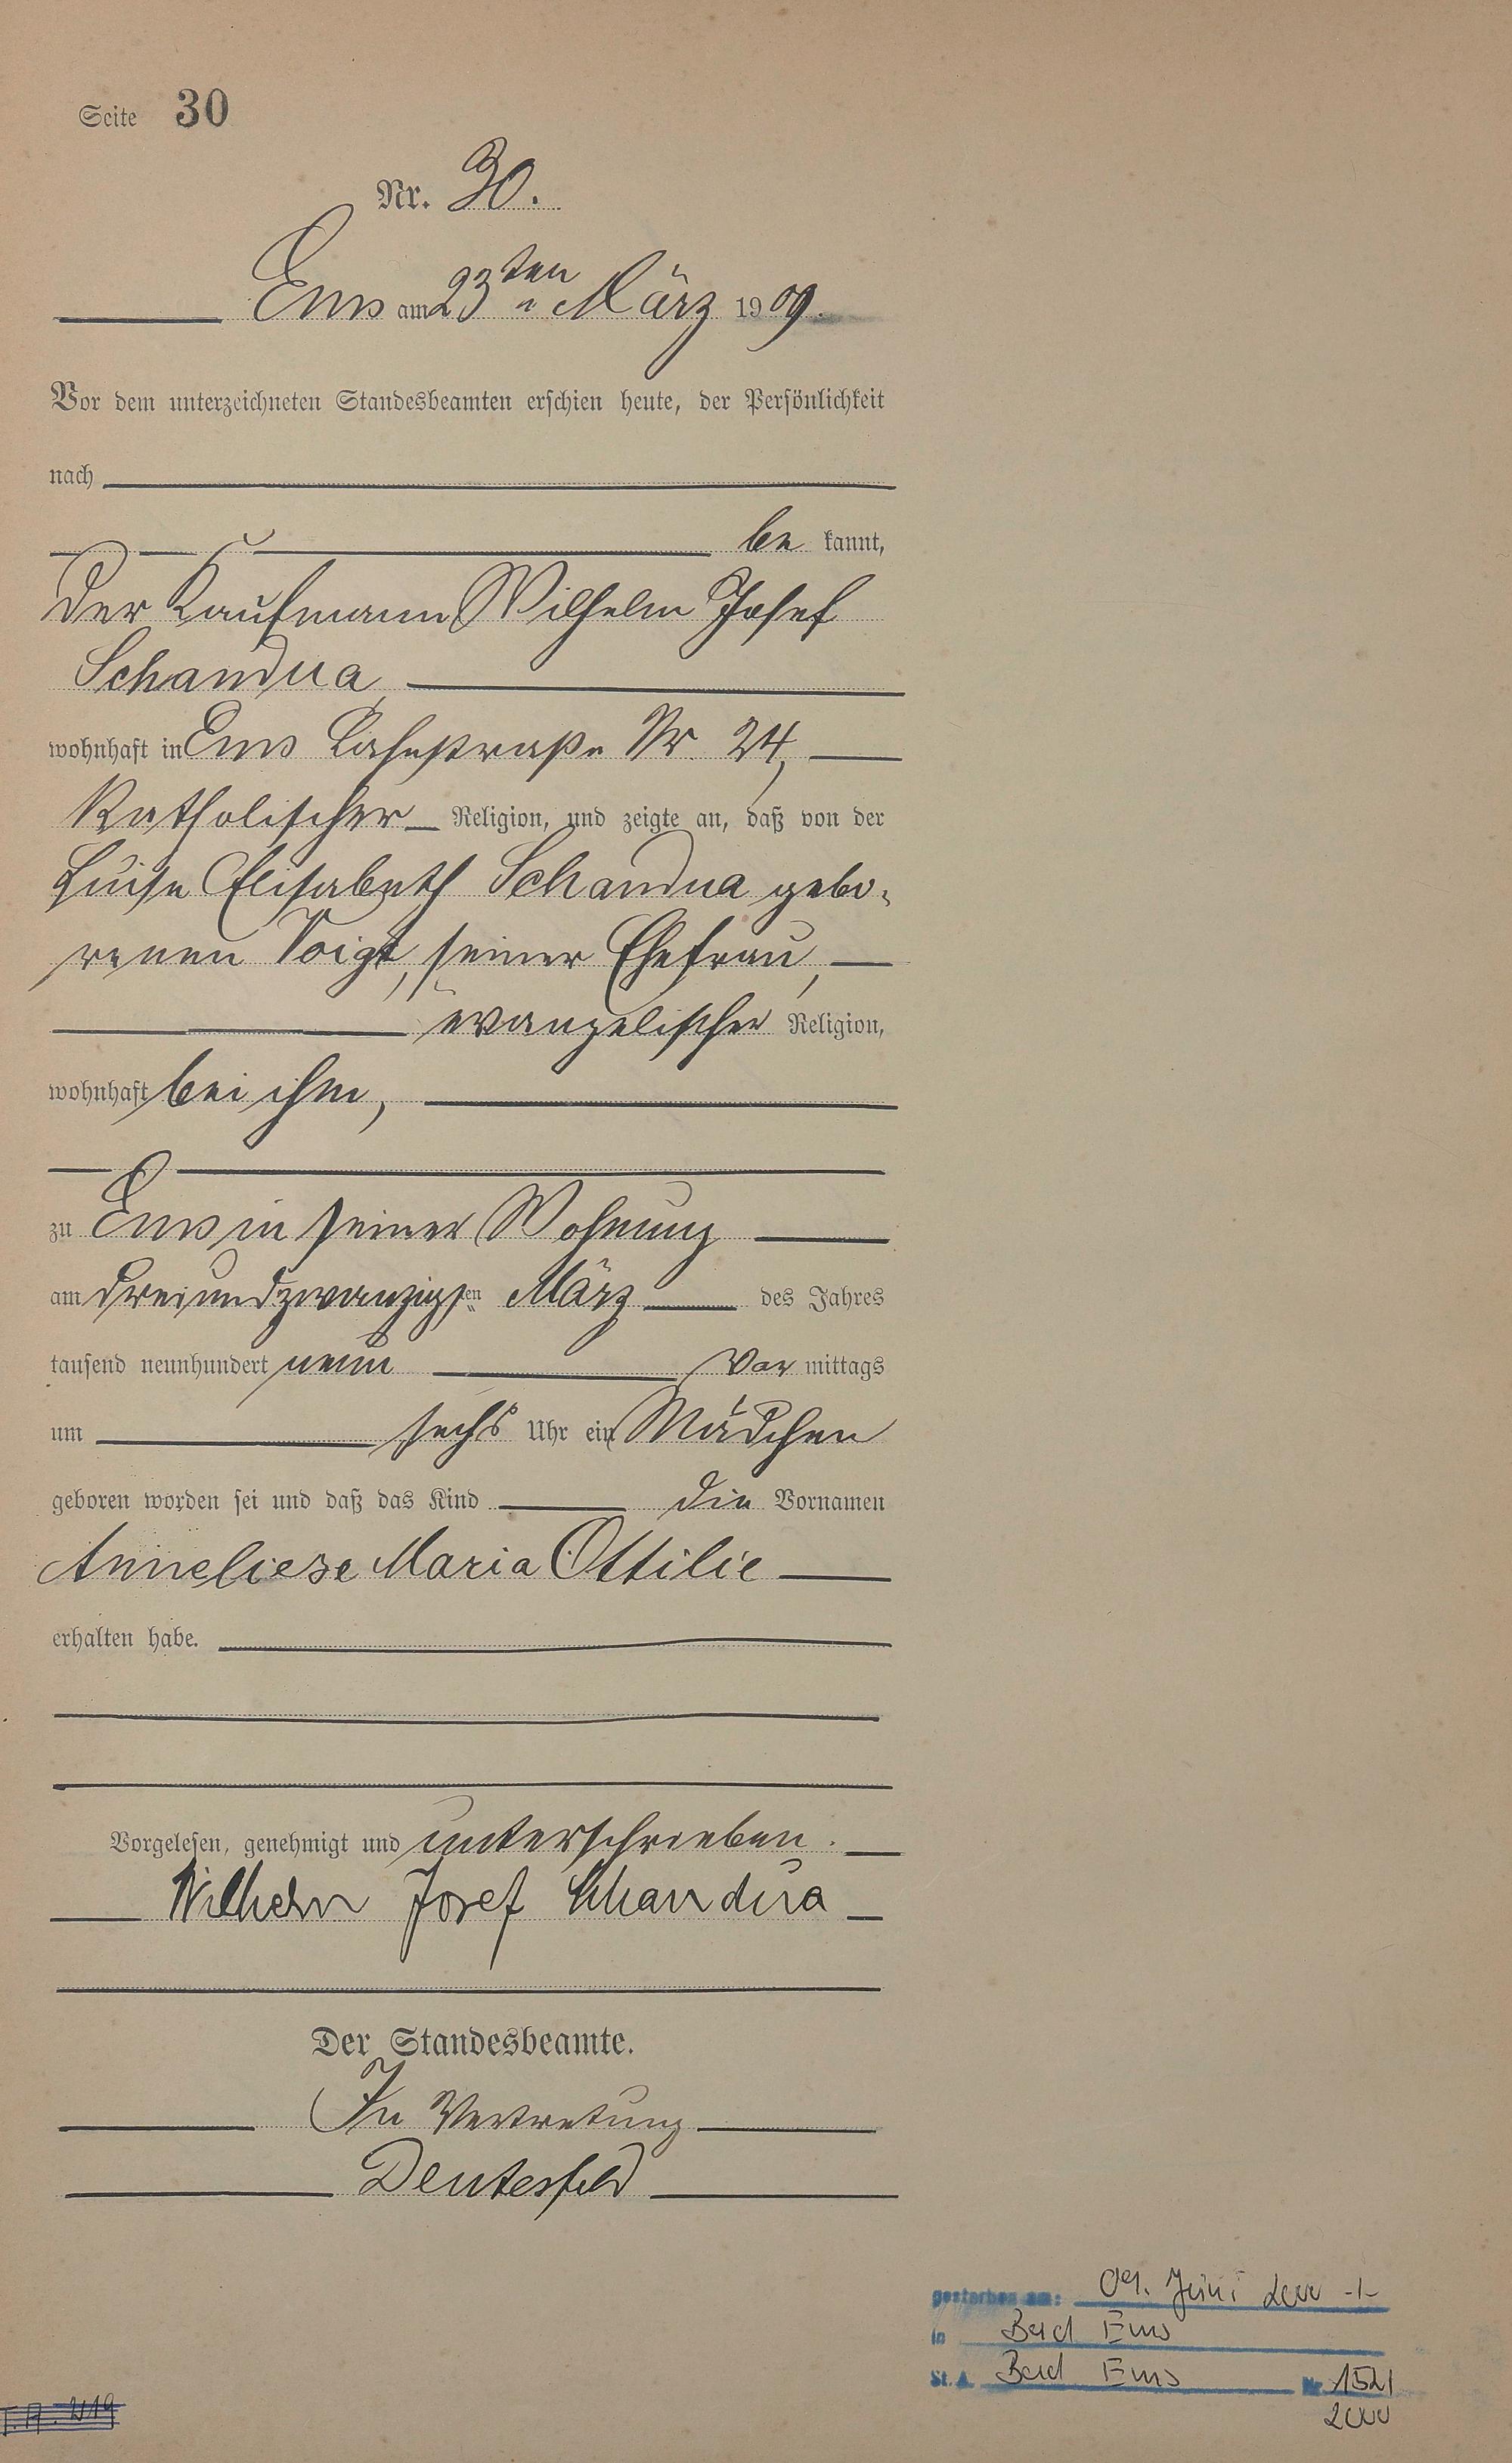 Seite 30
Nr. 30.
Ems am 23ten März 1909.
Vor dem unterzeichneten Standesbeamten erschien heute, der Persönlichkeit
nach
be kannt,
der Kaufmann Wilhelm Josef
Schandua
wohnhaft in Ems Lahnstraße Nr. 24,
katholischer Religion, und zeigte an, daß von der
Luise Elisabeth Schandua gebo-
renen Voigt, seiner Ehefrau,
evangelischer Religion,
wohnhaft bei ihm,
zu Ems in seiner Wohnung
am dreiundzwanzigsten März des Jahres
tausend neunhundert neun Vor mittags
um sechs Uhr ein Mädchen
geboren worden sei und daß das Kind die Vornamen
Anneliese Maria Ottilie
erhalten habe.
Vorgelesen, genehmigt und unterschrieben.
Wilhelm Josef Schandua
Der Standesbeamte.
In Vertretung
Deutesfeld
gestorben am: 09. Juni 2000 -/-
in Bad Ems
St. A. Bad Ems Nr. 152/
2000